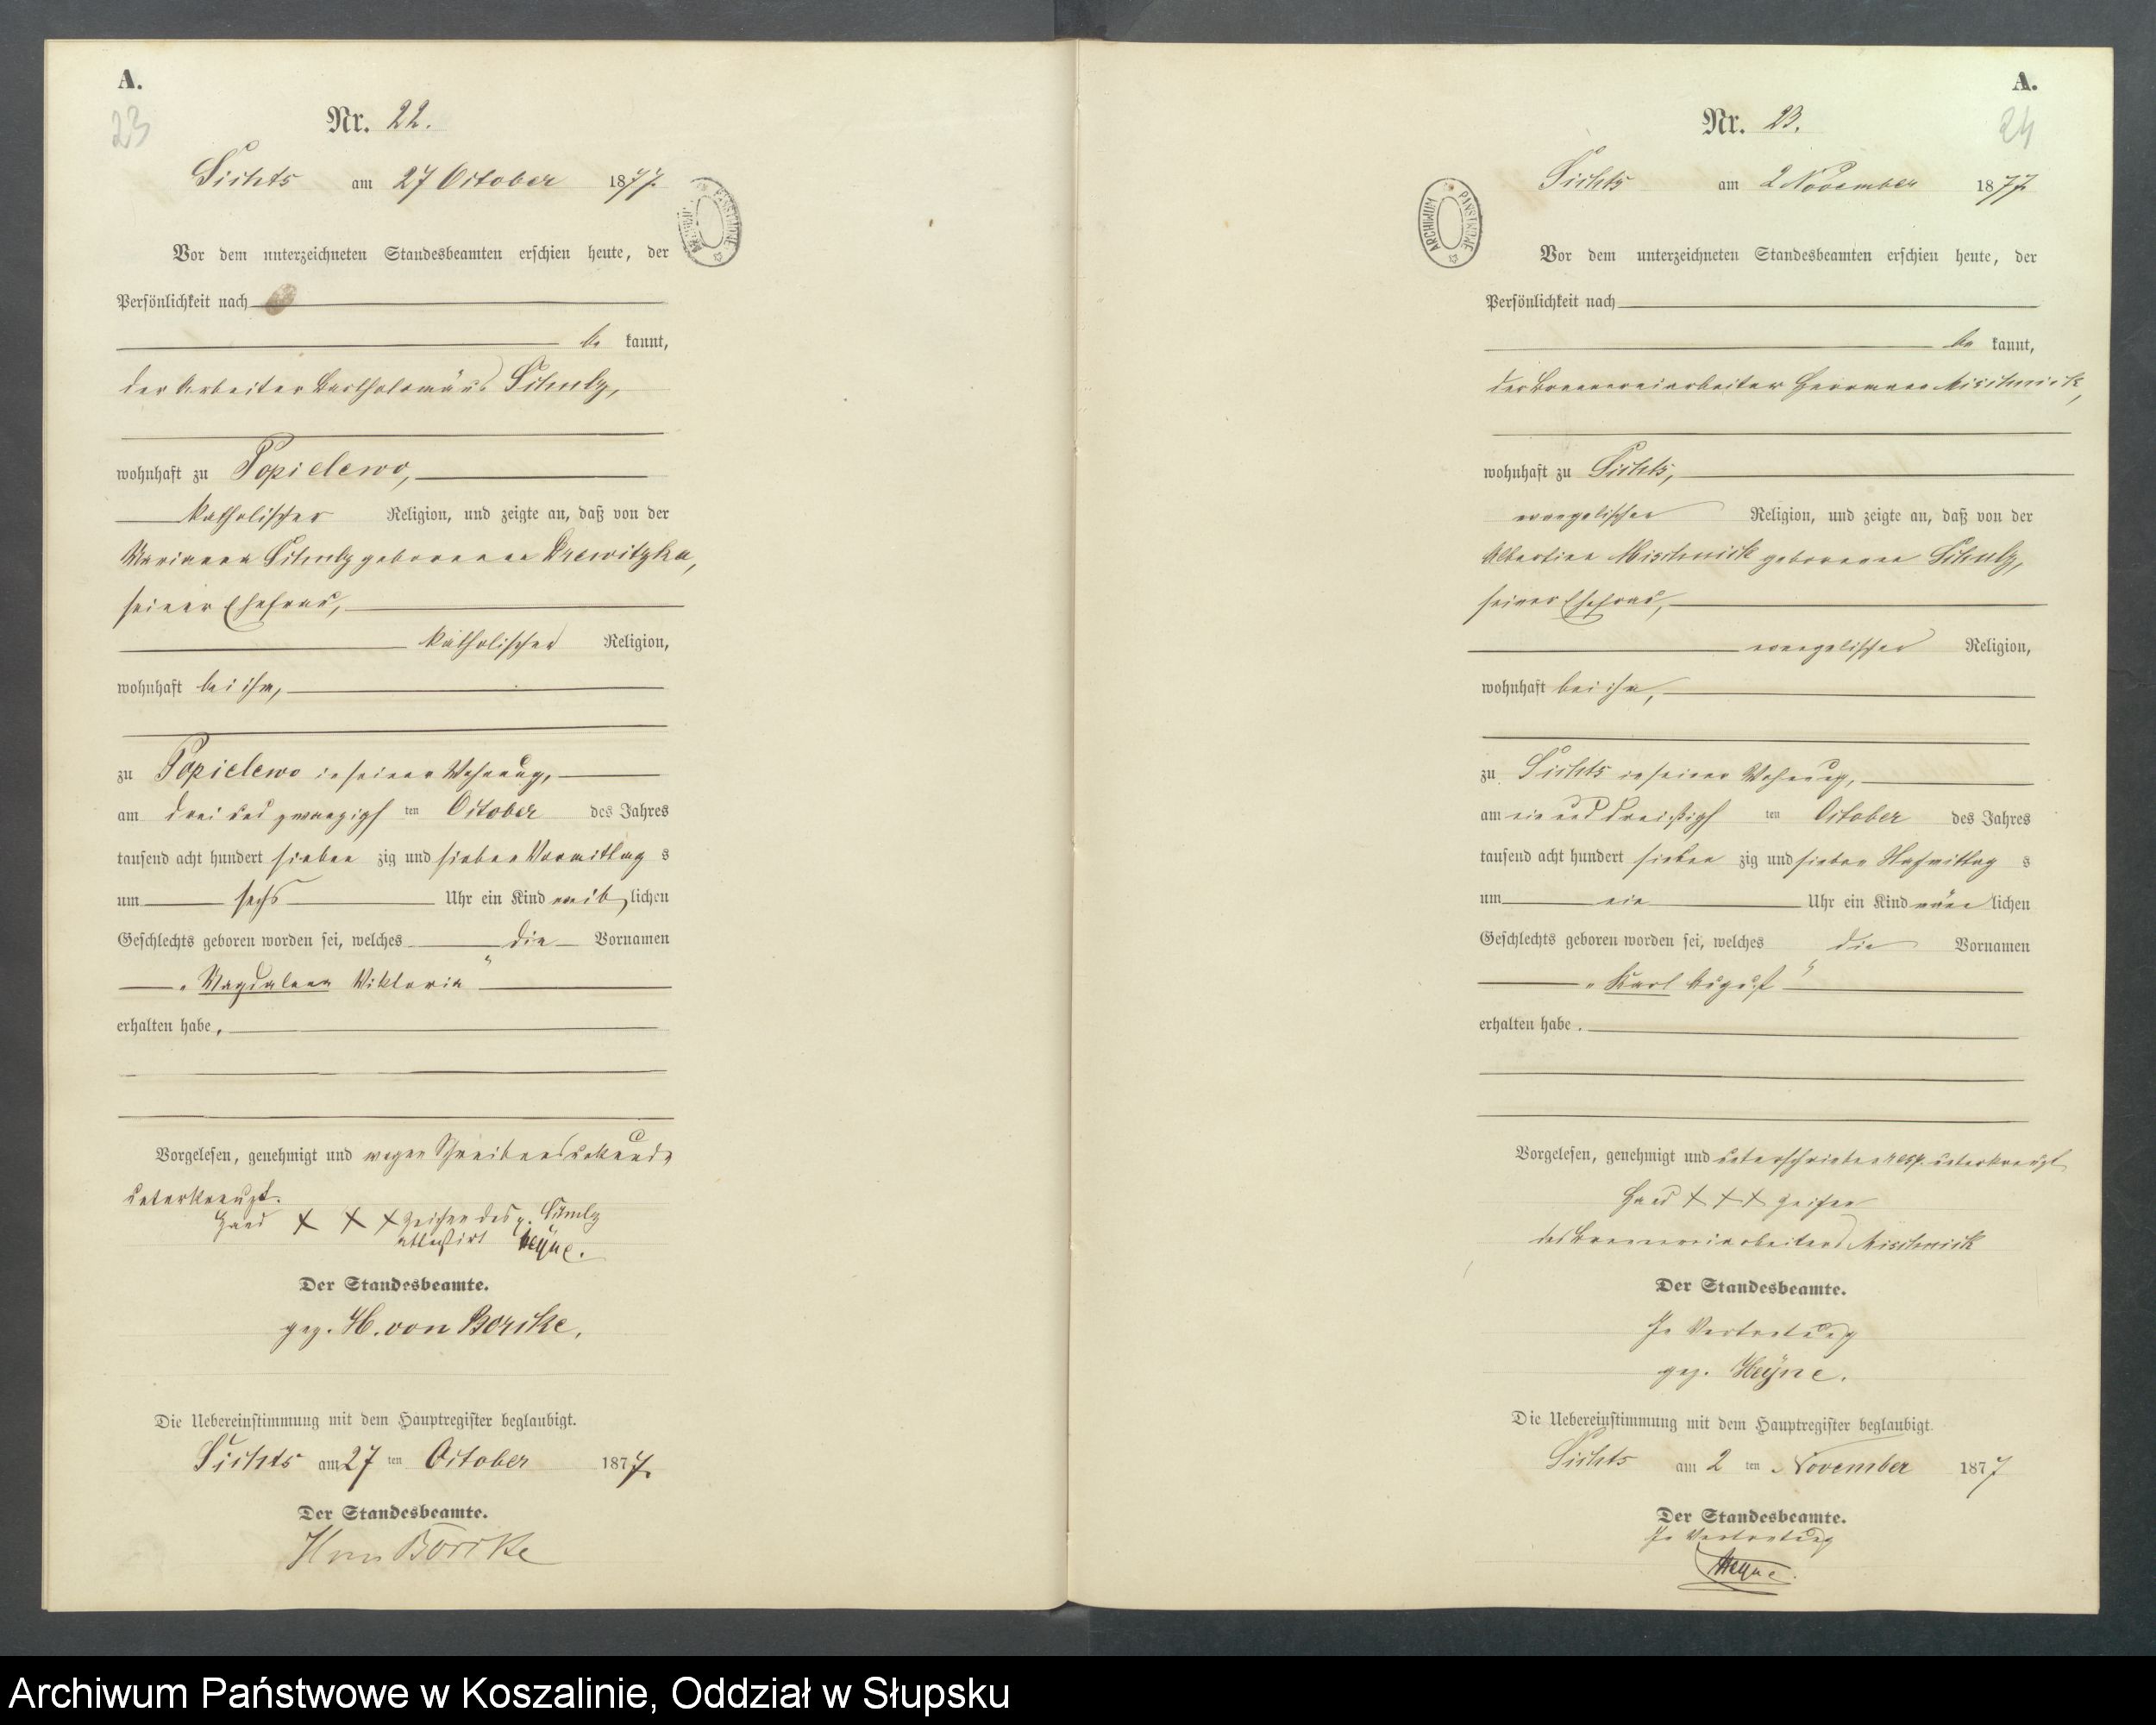 A.
23
Nr. 22.
Sichts am 27 October 1877.
ARCHIWUM PAŃSTWOWE
Vor dem unterzeichneten Standesbeamten erschien heute, der
Persönlichkeit nach
be kannt,
der Arbeiter Bartholomäus Schulz,
wohnhaft zu Popielewo,
katholischer Religion, und zeigte an, daß von der
Marianna Schulz geborenen Drewitzka,
seiner Ehefrau,
katholischer Religion,
wohnhaft bei ihm,
zu Popielewo in seiner Wohnung,
am drei und zwanzigs ten October des Jahres
tausend acht hundert sieben zig und sieben Vormittag s
um sechs Uhr ein Kind weib lichen
Geschlechts geboren worden sei, welches die Vornamen
„Magdalena Viktoria“
erhalten habe,
Vorgelesen, genehmigt und wegen Schreibensunkunde
unterkreuzt.
Hand X X X Zeichen des p. Schulz
attestirt Heyne.
Der Standesbeamte.
gez. H. von Borcke.
Die Uebereinstimmung mit dem Hauptregister beglaubigt.
Sichts am 27 ten October 1877.
Der Standesbeamte.
H von Borcke
A.
24
Nr. 23.
Sichts am 2 November 1877
ARCHIWUM PAŃSTWOWE
Vor dem unterzeichneten Standesbeamten erschien heute, der
Persönlichkeit nach
be kannt,
der Brennereiarbeiter Hermann Mischnick,
wohnhaft zu Sichts,
evangelischer Religion, und zeigte an, daß von der
Albertine Mischnick geborenen Schulz,
seiner Ehefrau,
evangelischer Religion,
wohnhaft bei ihm,
zu Sichts in seiner Wohnung,
am ein und dreißigs ten October des Jahres
tausend acht hundert sieben zig und sieben Nachmittag s
um ein Uhr ein Kind männ lichen
Geschlechts geboren worden sei, welches die Vornamen
„Karl August“
erhalten habe.
Vorgelesen, genehmigt und unterschrieben resp. unterkreuzt
Hand X X X Zeichen
des Brennereiarbeiters Mischnick
Der Standesbeamte.
In Vertretung
gez. Heyne.
Die Uebereinstimmung mit dem Hauptregister beglaubigt.
Sichts am 2 ten November 1877
Der Standesbeamte.
In Vertretung
Heyne.
Archiwum Państwowe w Koszalinie, Oddział w Słupsku